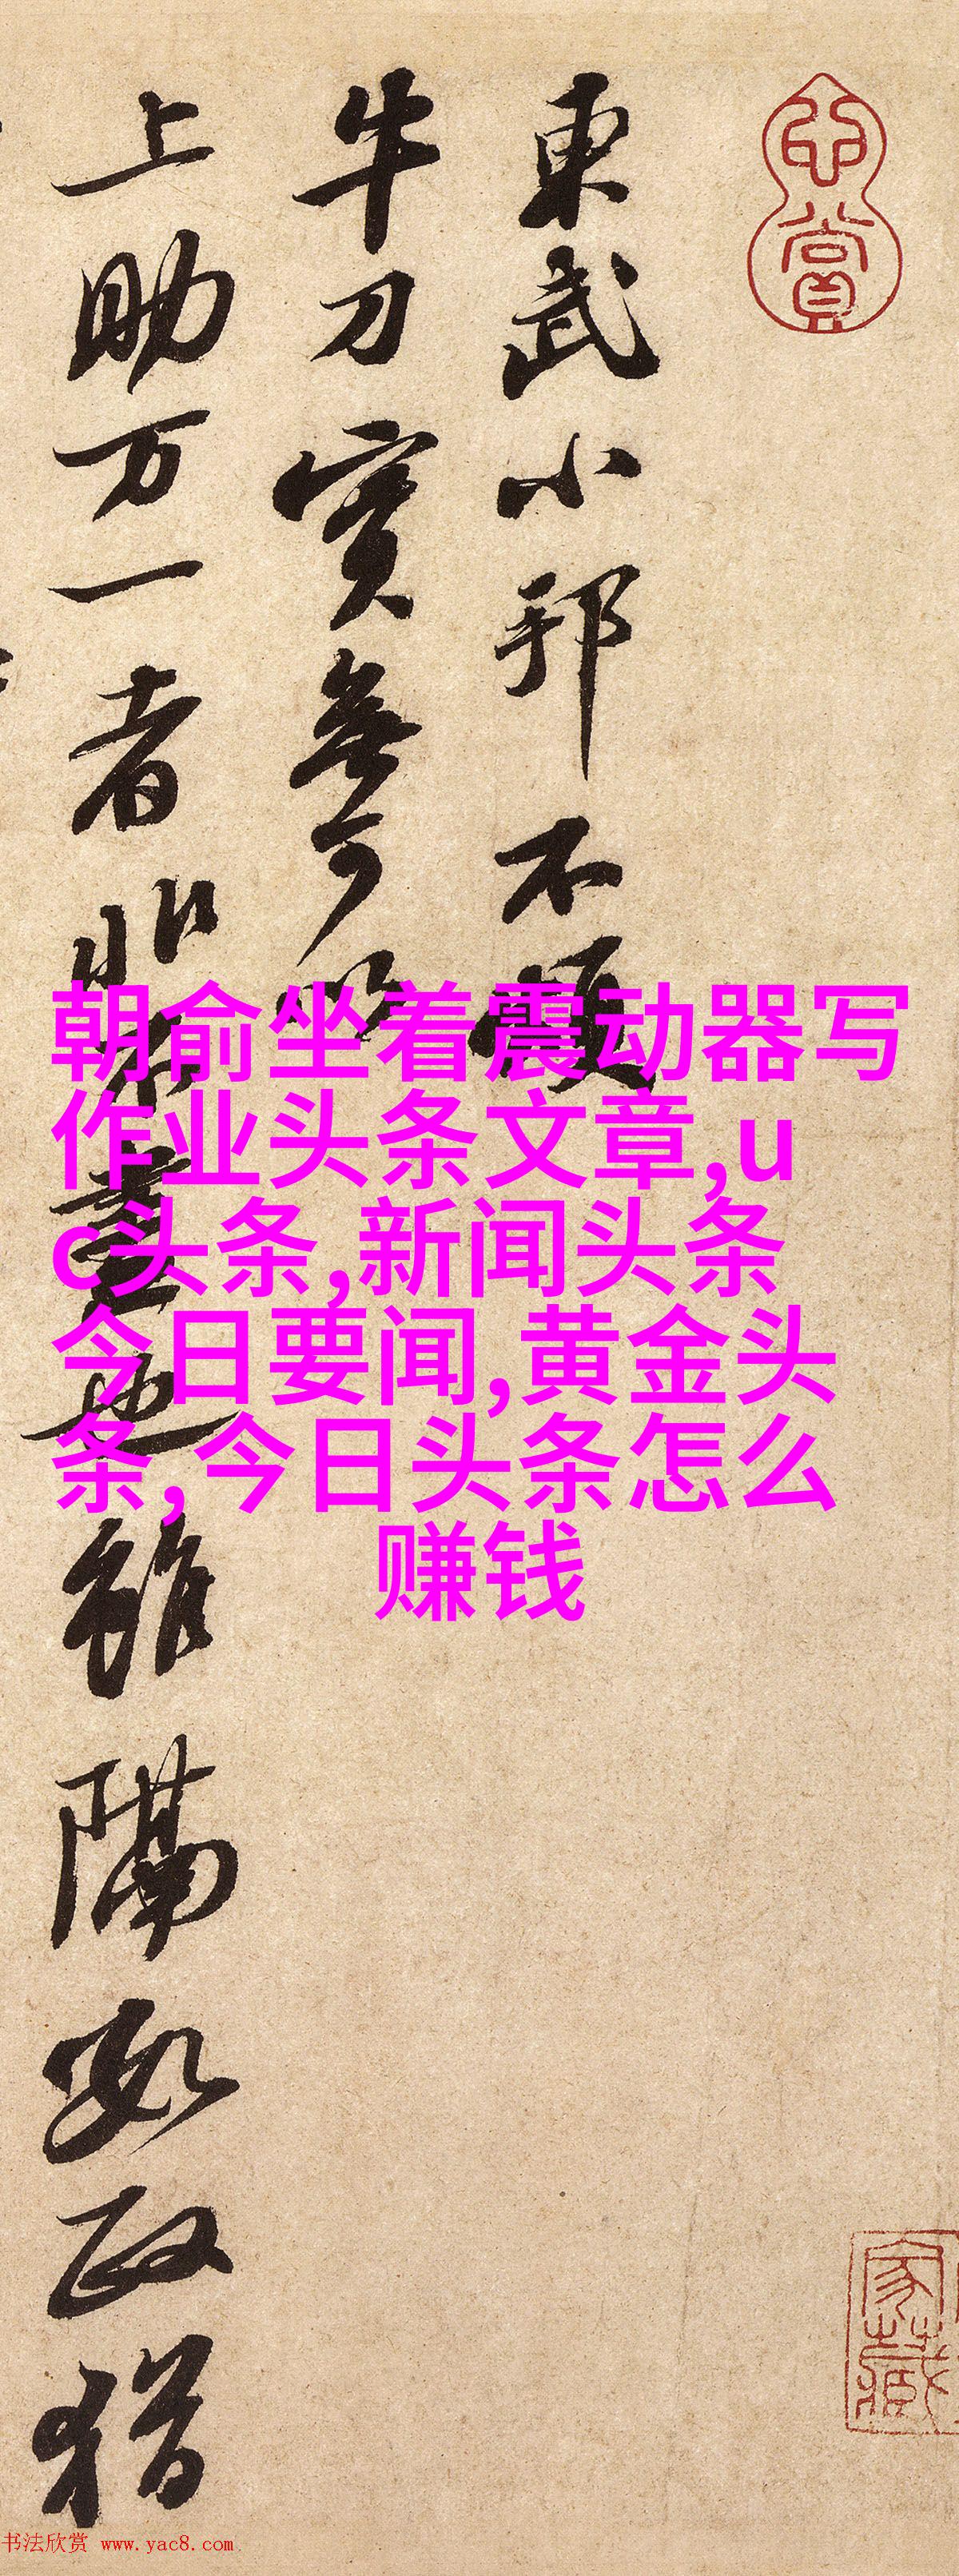 心賞
東武小邦不煩
牛刀實無可以
上助万一者非不盡也雖隔數政猶
朝俞坐着震动器写
作业头条文章,u
c头条,新闻头条
今日要闻,黄金头
条,今日头条怎么
赚钱
家藏
书法欣赏 www.yac8.com